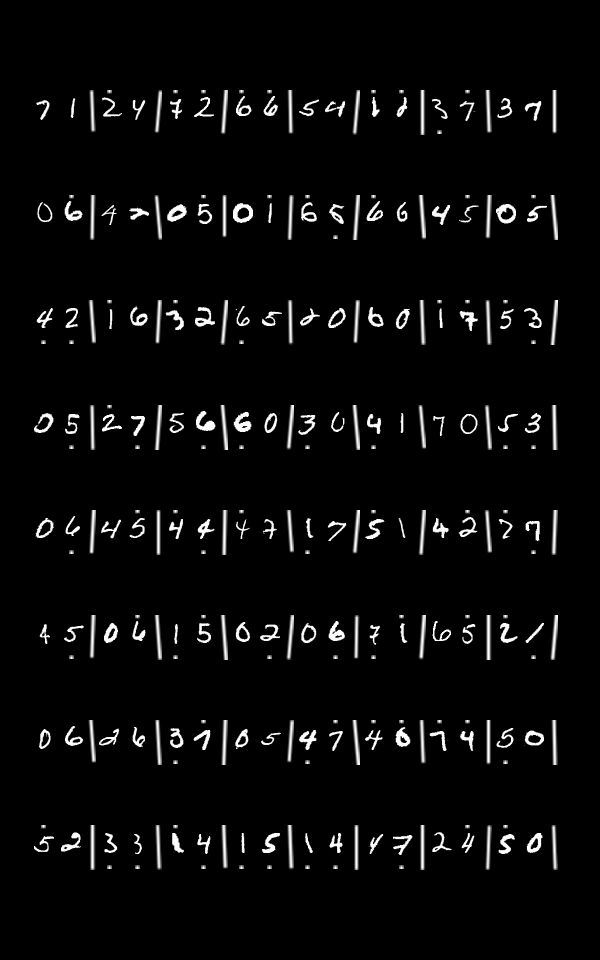 7 1 | 2 4 | 7 2 | 6 6 | 5 4 | 1 1 | 3 7 | 3 7 |
0 6 | 4 2 | 0 5 | 0 1 | 6 5 | 6 6 | 4 5 | 0 5 |
4 2 | 1 6 | 3 2 | 6 5 | 2 0 | 6 0 | 1 7 | 5 3 |
0 5 | 2 7 | 5 6 | 6 0 | 3 0 | 4 1 | 7 0 | 5 3 |
0 6 | 4 5 | 4 4 | 4 7 | 1 7 | 5 1 | 4 2 | 7 7 |
4 5 | 0 6 | 1 5 | 0 2 | 0 6 | 7 1 | 6 5 | 2 1 |
0 6 | 2 6 | 3 7 | 0 5 | 4 7 | 4 6 | 7 4 | 5 0 |
5 2 | 3 3 | 1 4 | 1 5 | 1 4 | 4 7 | 2 4 | 5 0 |